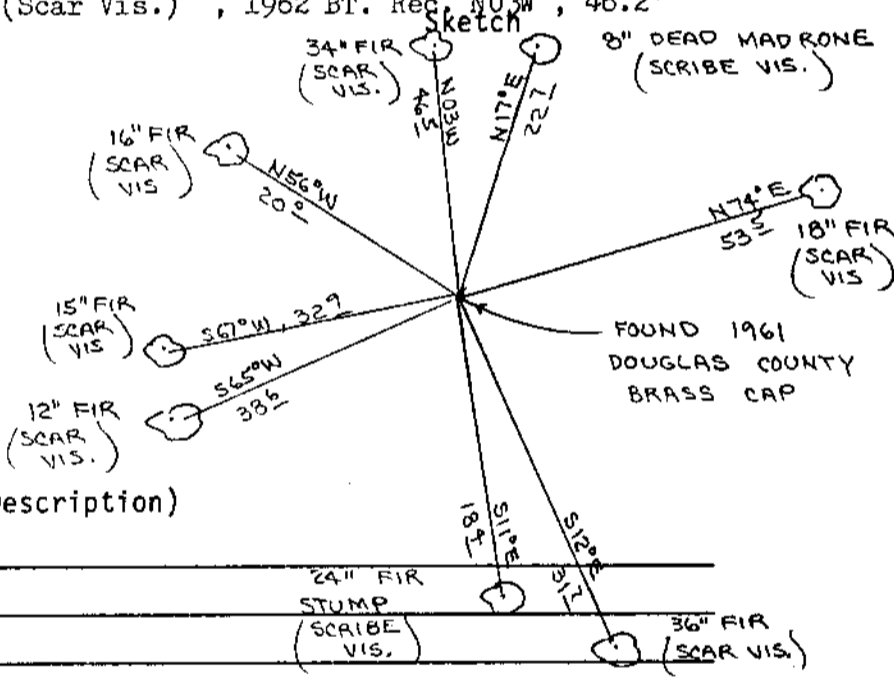 (Scar Vis.) , 1962 BT. Rec. N03W , 46.2
Sketch
34" FIR
(SCAR
VIS.)
8" DEAD MADRONE
(SCRIBE VIS.)
N03W
46.5
N17°E
22.7
16" FIR
(SCAR
VIS)
N56°W
20.0
N74°E
53.5
18" FIR
(SCAR
VIS)
15" FIR
(SCAR
VIS)
S67°W, 32.9
S65°W
38.6
12" FIR
(SCAR
VIS.)
FOUND 1961
DOUGLAS COUNTY
BRASS CAP
escription)
S11°E
18.4
S12°E
31.2
24" FIR
STUMP
(SCRIBE
VIS.)
36" FIR
(SCAR VIS.)